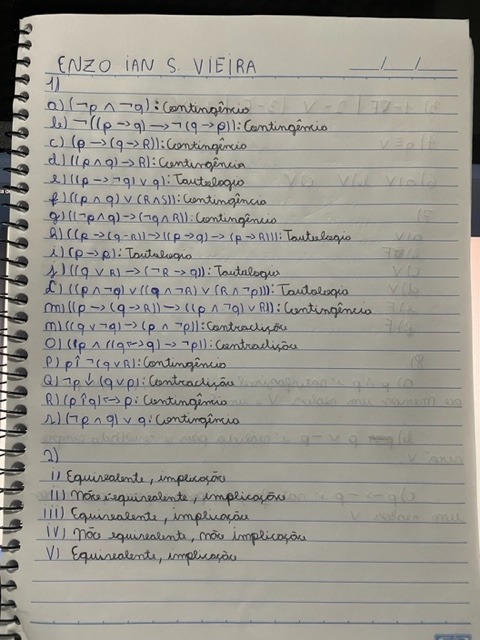 ENZO IAN S. VIEIRA __/__/__
1)
a) (¬p ∧ ¬q): Contingência
b) ¬((p → q) → ¬(q → p)): Contingência
c) (p → (q → R)): Contingência
d) ((p ∧ q) → R): Contingência
e) ((p → ¬q) ∨ q): Tautologia
f) ((p ∧ q) ∨ (R ∧ S)): Contingência
g) ((¬p ∧ q) → (¬q ∧ R)): Contingência
h) ((p → (q → R)) → ((p → q) → (p → R))): Tautologia
i) (p → p): Tautologia
j) ((q ∨ R) → (¬R → q)): Tautologia
l) ((p ∧ ¬q) ∨ ((q ∧ ¬R) ∨ (R ∧ ¬p))): Tautologia
m) ((p → (q → R)) → ((p ∧ ¬q) ∨ R)): Contingência
n) ((q ∨ ¬q) → (p ∧ ¬p)): Contradição
O) ((p ∧ ((q ↔ q) → ¬p)): Contradição
P) p ↑ ¬(q ∨ R): Contingência
Q) ¬p ↓ (q ∨ p): Contradição
R) (p ↑ q) ↔ p: Contingência
s) (¬p ∧ q) ∨ q: Contingência
2)
I) Equivalente, implicação
II) Não equivalente, implicação
III) Equivalente, implicação
IV) Não equivalente, não implicação
V) Equivalente, implicação